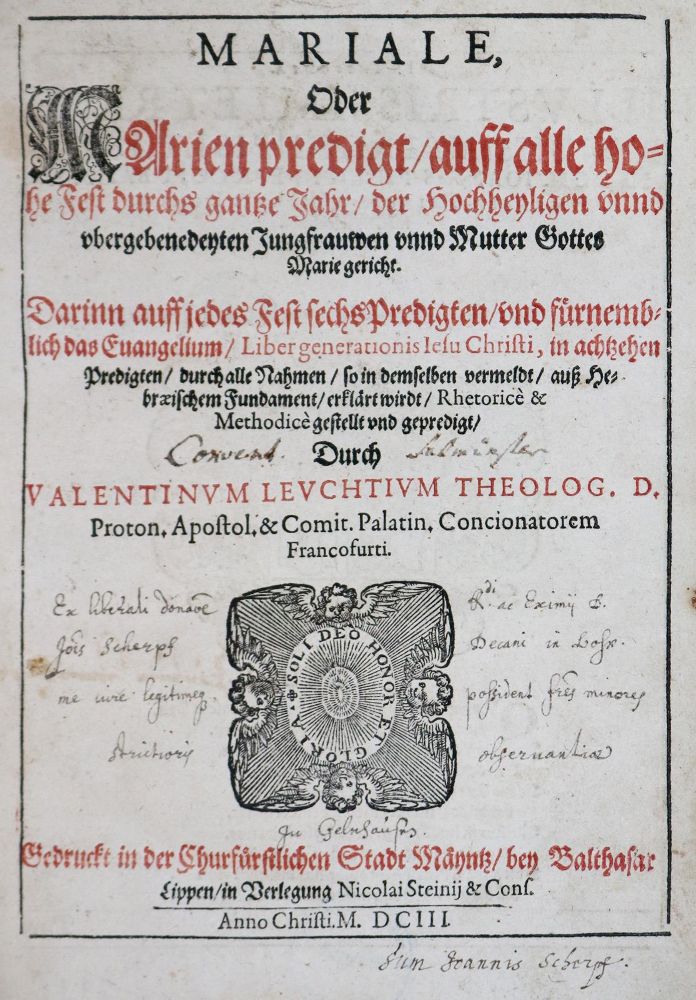 MARIALE,
Oder
MArien predigt/ auff alle ho-
he Fest durchs gantze Jahr/ der Hochheyligen vnnd
vbergebenedeyten Jungfrauwen vnnd Mutter Gottes
Marie gericht.
Darinn auff jedes Fest sechs Predigten/ vnd fürnemb-
lich das Euangelium/ Liber generationis Iesu Christi, in achtzehen
Predigten/ durch alle Nahmen/ so in demselben vermeldt/ auß He-
bræischem Fundament/ erklärt wirdt/ Rhetoricè &
Methodicè gestellt vnd gepredigt/
Convent. Durch Salmünster
VALENTINVM LEVCHTIVM THEOLOG. D.
Proton. Apostol. & Comit. Palatin. Concionatorem
Francofurti.
Ex liberali donaōe R.di ac Eximij D.
Jōis Scherpf Decani in
me iure legitimeq possident frēs minores
strictioris obseruantiae
SOLI DEO HONOR ET GLORIA
In Gelnhausen.
Gedruckt in der Churfürstlichen Stadt Mäyntz/ bey Balthasar
Lippen/ in Verlegung Nicolai Steinij & Cons.
Anno Christi. M. DCIII.
Sum Joannis Scherpf.